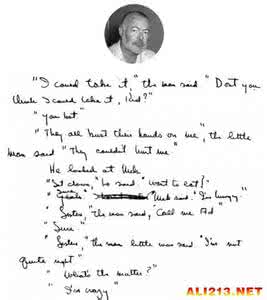 "I could take it," the man said. "Don't you
think I could take it, kid?"
"You bet"
"They all bust their hands on me", the little
man said "They couldn't hurt me"
He looked at Nick
"Sit down," he said. "Want to eat?"
"Sure Nick said. "I'm hungry."
"Listen," the man said, "Call me Ad"
"Sure"
"Listen, "the man little said. "I'm not
quite right"
"What's the matter?"
"I'm crazy"
ALI213.NET